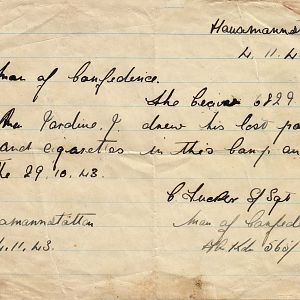 Hausmannst
4.11.4
man of Confedence.
The Bearer 6829
Jardine. J. drew his last pa
and cigarettes in this camp an
the 29.10.43.
C Tucker S/Sgt
amannstätten
Man of Confede
4.11.43.